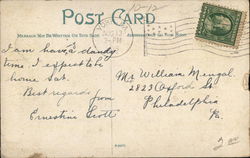 10-12
POST CARD
MESSAGE MAY BE WRITTEN ON THIS SIDE
I am having a dandy
time. I expect to be
home Sat.
Best regards from
Ernestine Scott
Mr William Mengal
2823 Oxford St
Philadelphia
Pa.